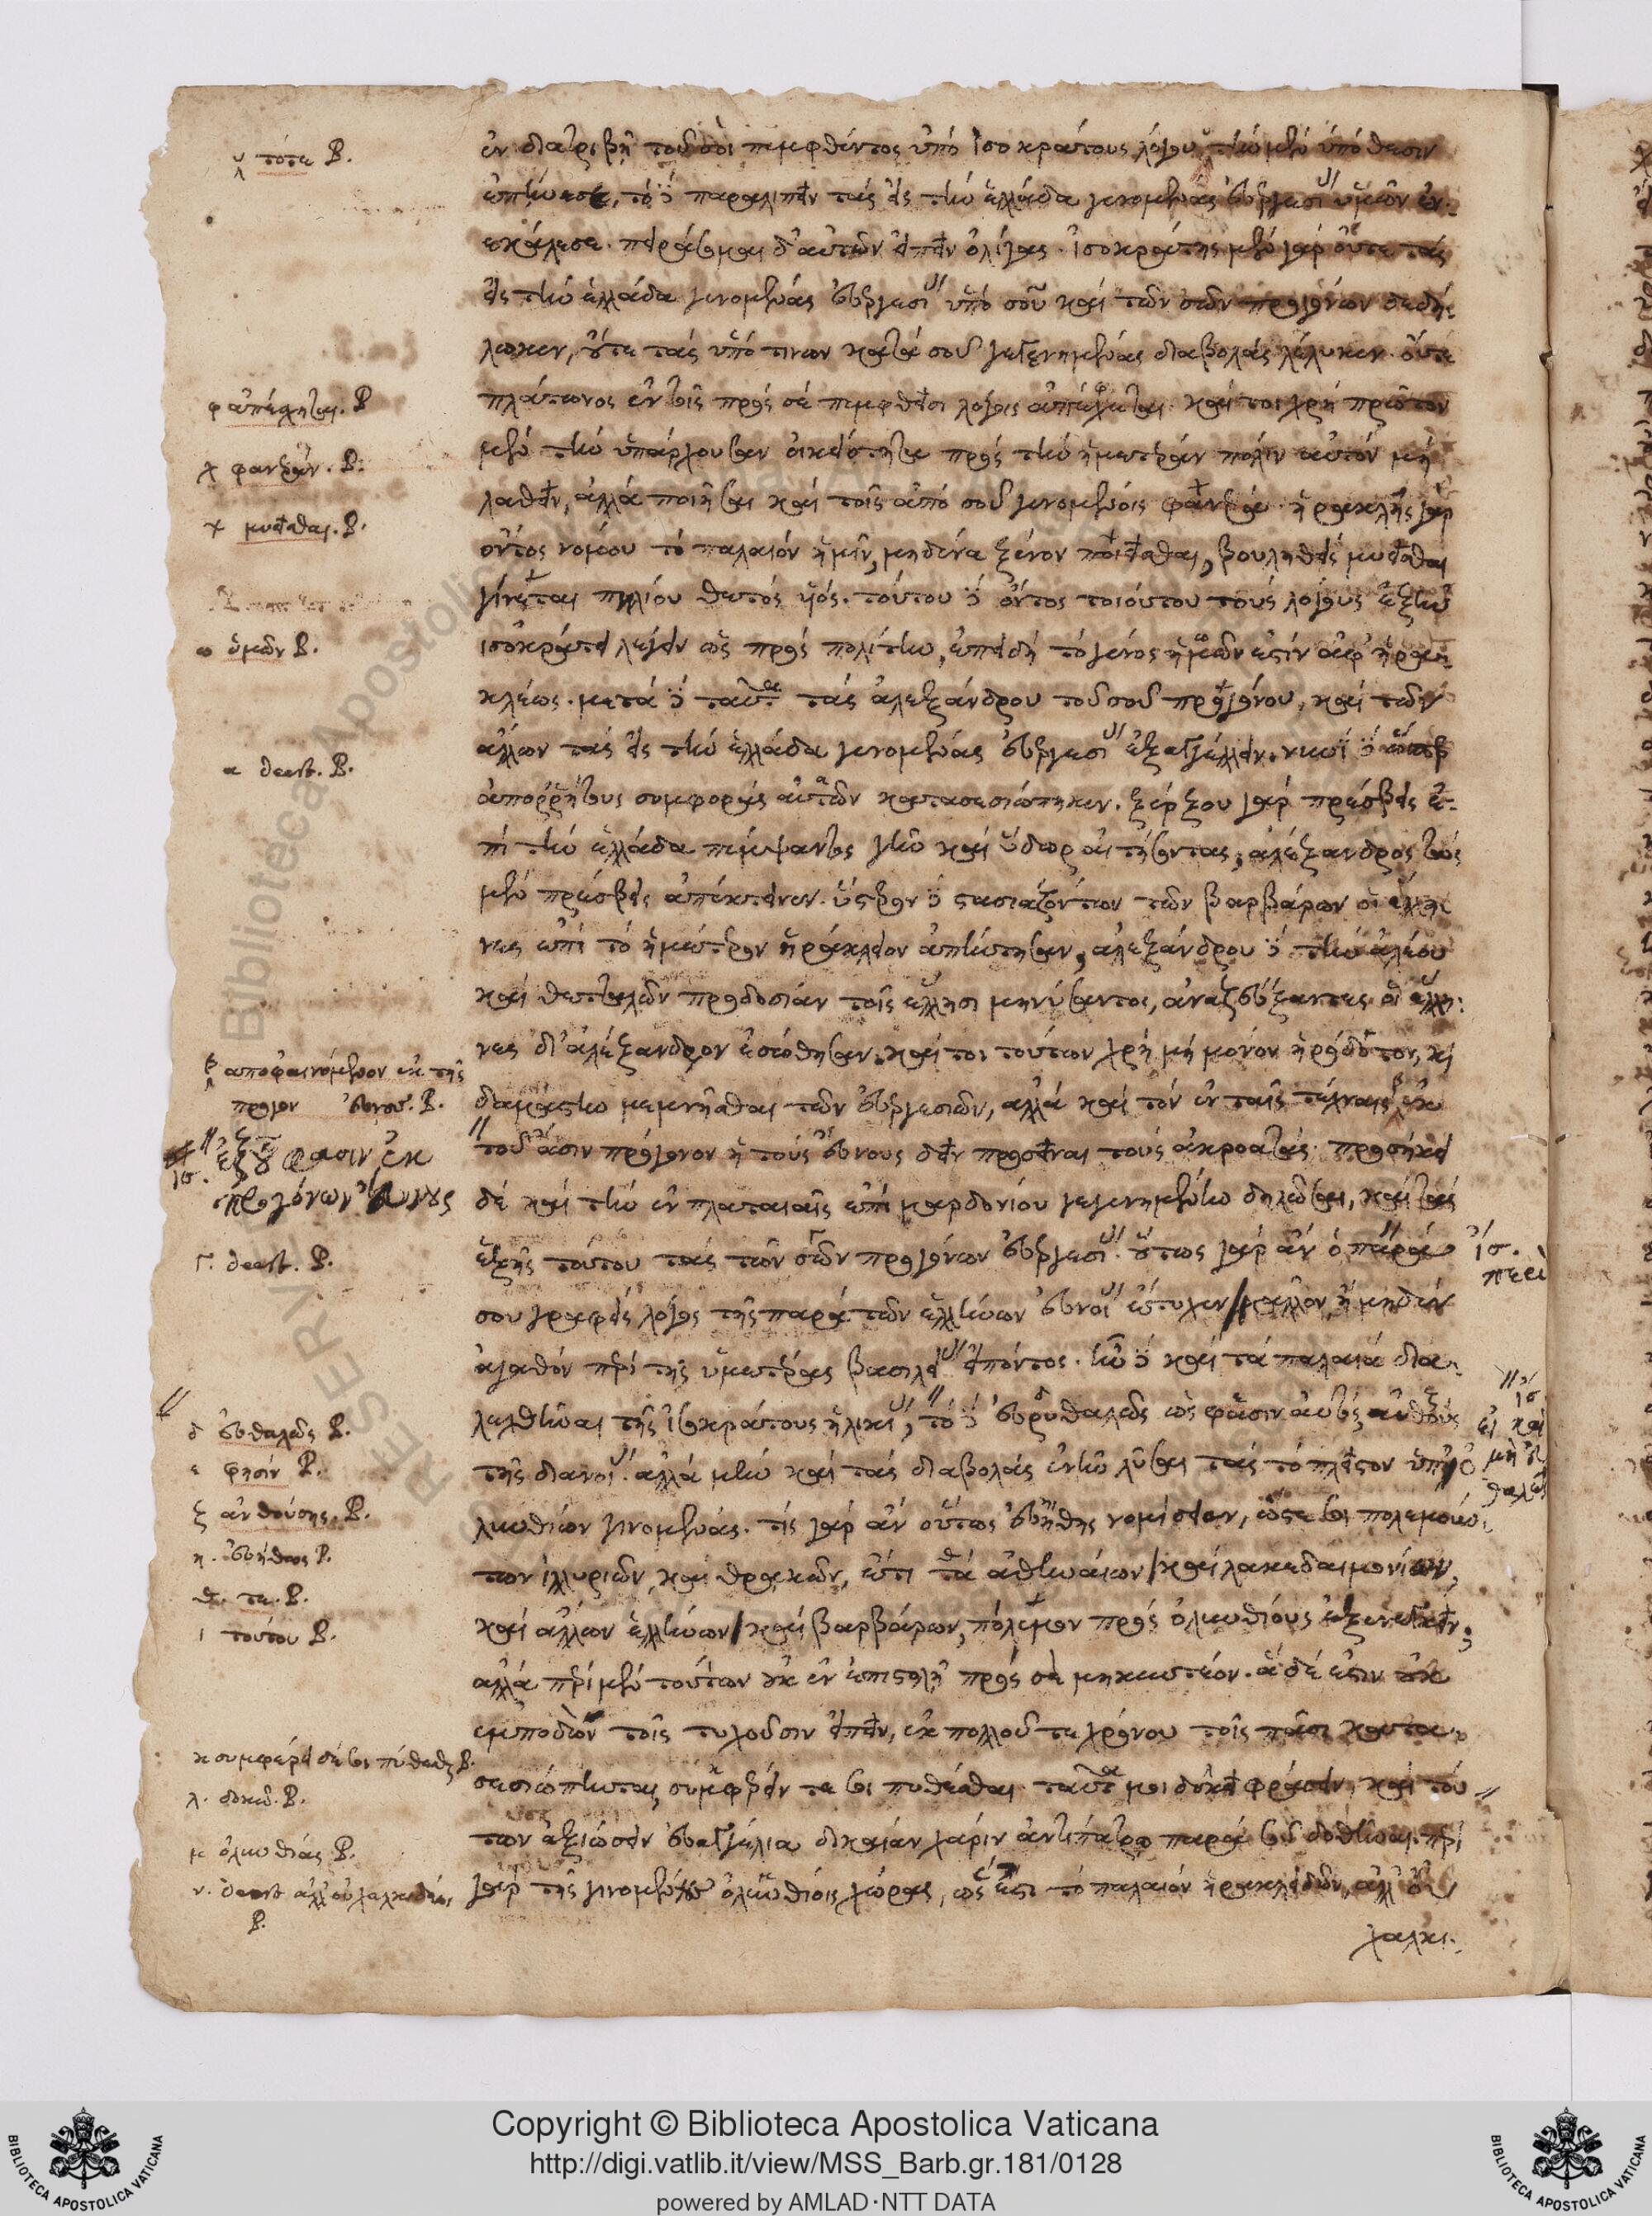 ἐν διατριβῇ τοῦ σοι πεμφθέντος ὑπὸ ἰσοκράτους λόγου τὴν μὲν ὑπόθεσιν
ἐπῄνεσε, τὸ δὲ παραλιπεῖν τὰς εἰς τὴν ἑλλάδα γενομένας εὐεργεσίας ὑμῶν ἐν-
εκάλεσε. πειράσομαι δ' αὐτῶν εἰπεῖν ὀλίγας. ἰσοκράτης μὲν γὰρ οὔτε τὰς
εἰς τὴν ἑλλάδα γενομένας εὐεργεσίας ὑπὸ σοῦ καὶ τῶν σῶν προγόνων δεδή-
λωκεν, οὔτε τὰς ὑπό τινων κατὰ σοῦ γεγενημένας διαβολὰς λέλυκεν. οὔτε
πλάτωνος ἐν τοῖς πρὸς σὲ πεμφθεῖσι λόγοις ἀπέσχηται. καί τοι χρὴ πρῶτον
μὲν τὴν ὑπάρχουσαν οἰκειότητα πρὸς τὴν ἡμετέραν πόλιν αὐτὸν μὴ
λαθεῖν, ἀλλὰ ποιῆσαι καὶ τοῖς ἀπὸ σοῦ γενομένοις φανεράν. ἡρακλῆς γὰρ
ὄντος νόμου τὸ παλαιὸν ἡμῖν, μηδένα ξένον ποιεῖσθαι, βουληθεὶς μυεῖσθαι
γίνεται πυλίου θετὸς υἱός. τούτου δὲ ὄντος τοιούτου τοὺς λόγους ἐξῆν
ἰσοκράτει λέγειν ὡς πρὸς πολίτην, ἐπειδὴ τὸ γένος ἡμῶν ἐστὶν ἀφ' ἡρα-
κλέως. μετὰ δὲ ταῦτα τὰς ἀλεξάνδρου τοῦ σοῦ προγόνου, καὶ τῶν
ἄλλων τὰς εἰς τὴν ἑλλάδα γενομένας εὐεργεσίας ἐξαγγέλλειν. νυνὶ δὲ ὥσπερ
ἀπορρήτους συμφορὰς αὐτῶν κατασεσιώπηκεν. ξέρξου γὰρ πρέσβεις ἐ-
πὶ τὴν ἑλλάδα πέμψαντος γῆν καὶ ὕδωρ αἰτήσοντας, ἀλέξανδρος τοὺς
μὲν πρέσβεις ἀπέκτεινεν. ὕστερον δὲ στασιαζόντων τῶν βαρβάρων οἱ ἕλλη-
νες ἐπὶ τὸ ἡμέτερον ἡράκλειον ἀπήντησαν, ἀλεξάνδρου δὲ τὴν ἀλεύου
καὶ θετταλῶν προδοσίαν τοῖς ἕλλησι μηνύσαντος, ἀναζεύξαντες οἱ ἕλλη-
νες δι' ἀλέξανδρον ἐσώθησαν. καί τοι τούτων χρὴ μὴ μόνον ἡρόδοτον, καὶ
δαμάστην μεμνῆσθαι τῶν εὐεργεσιῶν, ἀλλὰ καὶ τὸν ἐν ταῖς τέχναις ἐκ
τοῦ ἄσιν πρόγονον ἢ τοὺς εὔνους δεῖν προσεῖναι τοὺς ἀκροατάς. προσῆκε
δὲ καὶ τὴν ἐν πλαταιαῖς ἐπὶ μαρδονίου γεγενημένην δηλῶσαι, καὶ τὰς
ἑξῆς τούτου τὰς τῶν σῶν προγόνων εὐεργεσίας. οὕτως γὰρ ἂν ὁ παρά
σου γραφεὶς λόγος τῆς παρὰ τῶν ἑλλήνων εὐνοίας ἐτύχεν μᾶλλον, ἢ μηδὲν
ἀγαθὸν περὶ τῆς ὑμετέρας βασιλείας εἰπόντος. ἦν δὲ καὶ τὰ παλαιὰ δια-
λεχθῆναι τῆς ἰσοκράτους ἡλικίας, τὸ δὲ εὐρυθαλῶς ὡς φασὶν αὐτὸς ἀνθούς
τῆς διανοίας. ἀλλὰ μὴν καὶ τὰς διαβολὰς ἐνῆν λῦσαι τὰς τὸ πλεῖστον ὑπ' ὀ-
λυνθίων γινομένας. τίς γὰρ ἂν οὕτως εὐήθης νομίσειεν, ὥστε σοι πολεμούν-
των ἰλλυριῶν καὶ θρακῶν, ἔτι τὰ ἀθηναίων καὶ λακεδαιμονίων,
καὶ ἄλλων ἑλλήνων καὶ βαρβάρων, πόλεμον πρὸς ὀλυνθίους ἐξενεγκεῖν,
ἀλλὰ περὶ μὲν τούτων οὐκ ἐν ἐπιστολῇ πρὸς σὲ μηκυντέον. ἃ δέ ἐστιν οὐκ
ἐμποδὼν τοῖς τυχοῦσιν εἰπεῖν, ἐκ πολλοῦ τε χρόνου τοῖς πᾶσι κατα-
σεσιώπηται, συμφέρειν τέ σοι πυθέσθαι. ταῦτά μοι δοκεῖ φράσειν, καὶ τού-
των ἀξιώσειν εὐαγγέλια δικαίαν χάριν ἀντιπάτρῳ παρὰ σοῦ δοθῆναι. περὶ
γὰρ τῆς γινομένης ὀλυνθίοις χώρας, ὡς ἔστι τὸ παλαιὸν ἡρακλειδῶν, ἀλλ' οὐ
χαλκι-
γ τότε Β.
φ ἀπέσχηται. Β
χ φανεράν. Β.
μυεῖσθαι. Β.
ω ὑμῶν Β.
α deest. Β.
β ἀποφαινόμενον ἐκ τῆς
Β.
ἐκ
ἰσ.
Γ. deest. Β.
ἰσ.
περὶ
ἰσ
εἰ καὶ
μὴ
δ εὐθαλῶς Β.
ε φησίν Β.
ζ ἀνθούσης. Β.
η. εὐήθως Β.
θ. τε. Β.
ι τούτου Β.
κ συμφέρει σέ σοι Β.
λ. δοκῶ. Β.
μ ὀλυνθίας Β.
ν. deest ἀλλ' οὐ χαλκιδέων
Β.
Biblioteca Apostolica
RESERVED
Copyright © Biblioteca Apostolica Vaticana
http://digi.vatlib.it/view/MSS_Barb.gr.181/0128
powered by AMLAD·NTT DATA
BIBLIOTECA APOSTOLICA VATICANA
BIBLIOTECA APOSTOLICA VATICANA